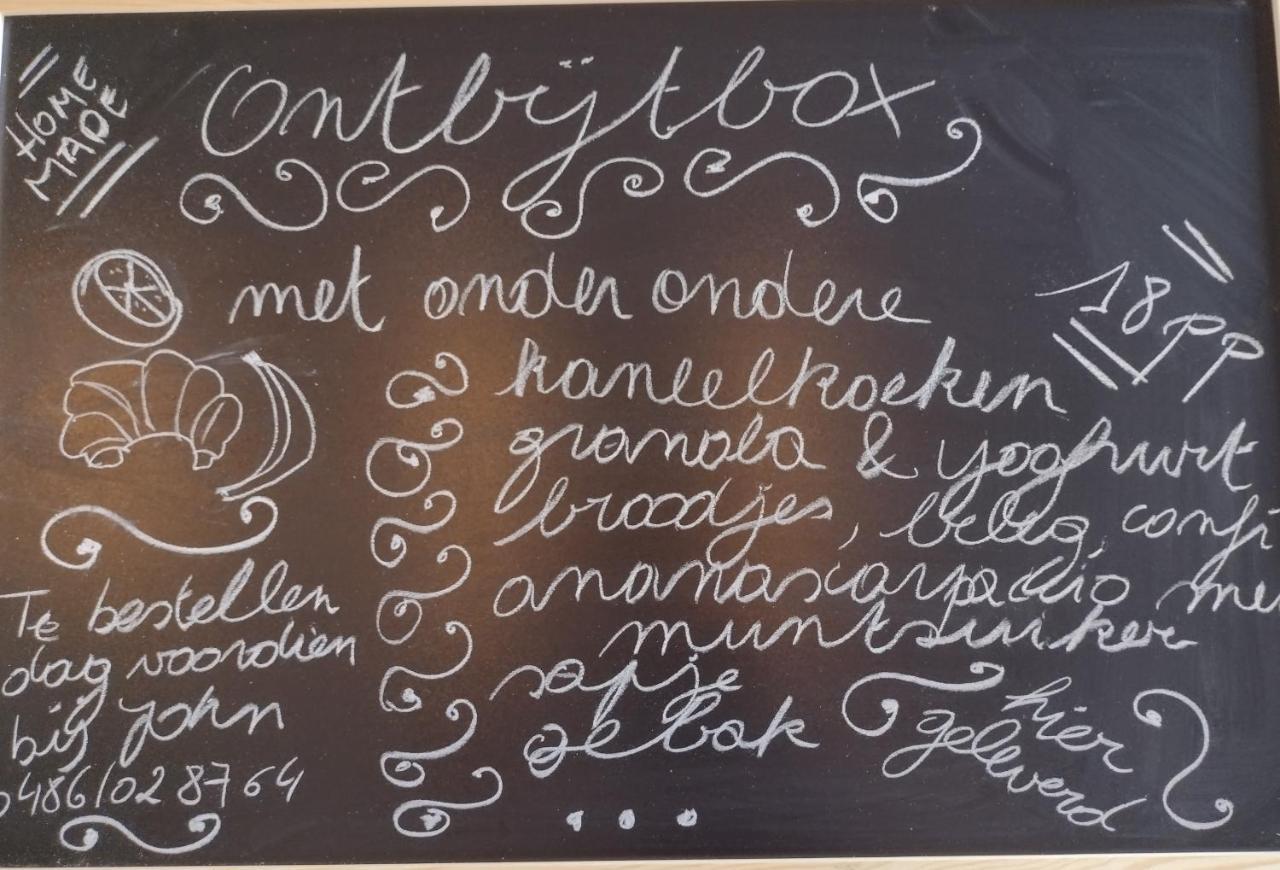 HOME
MADE
Ontbijtbox
met onder andere
18 pp
kaneelkoeken
granola & yoghurt
broodjes, beleg, confi
ananascarpaccio me
muntsuiker
sapje
gebak
...
Te bestellen
dag voordien
bij John
0486/02 87 64
hier
geleverd